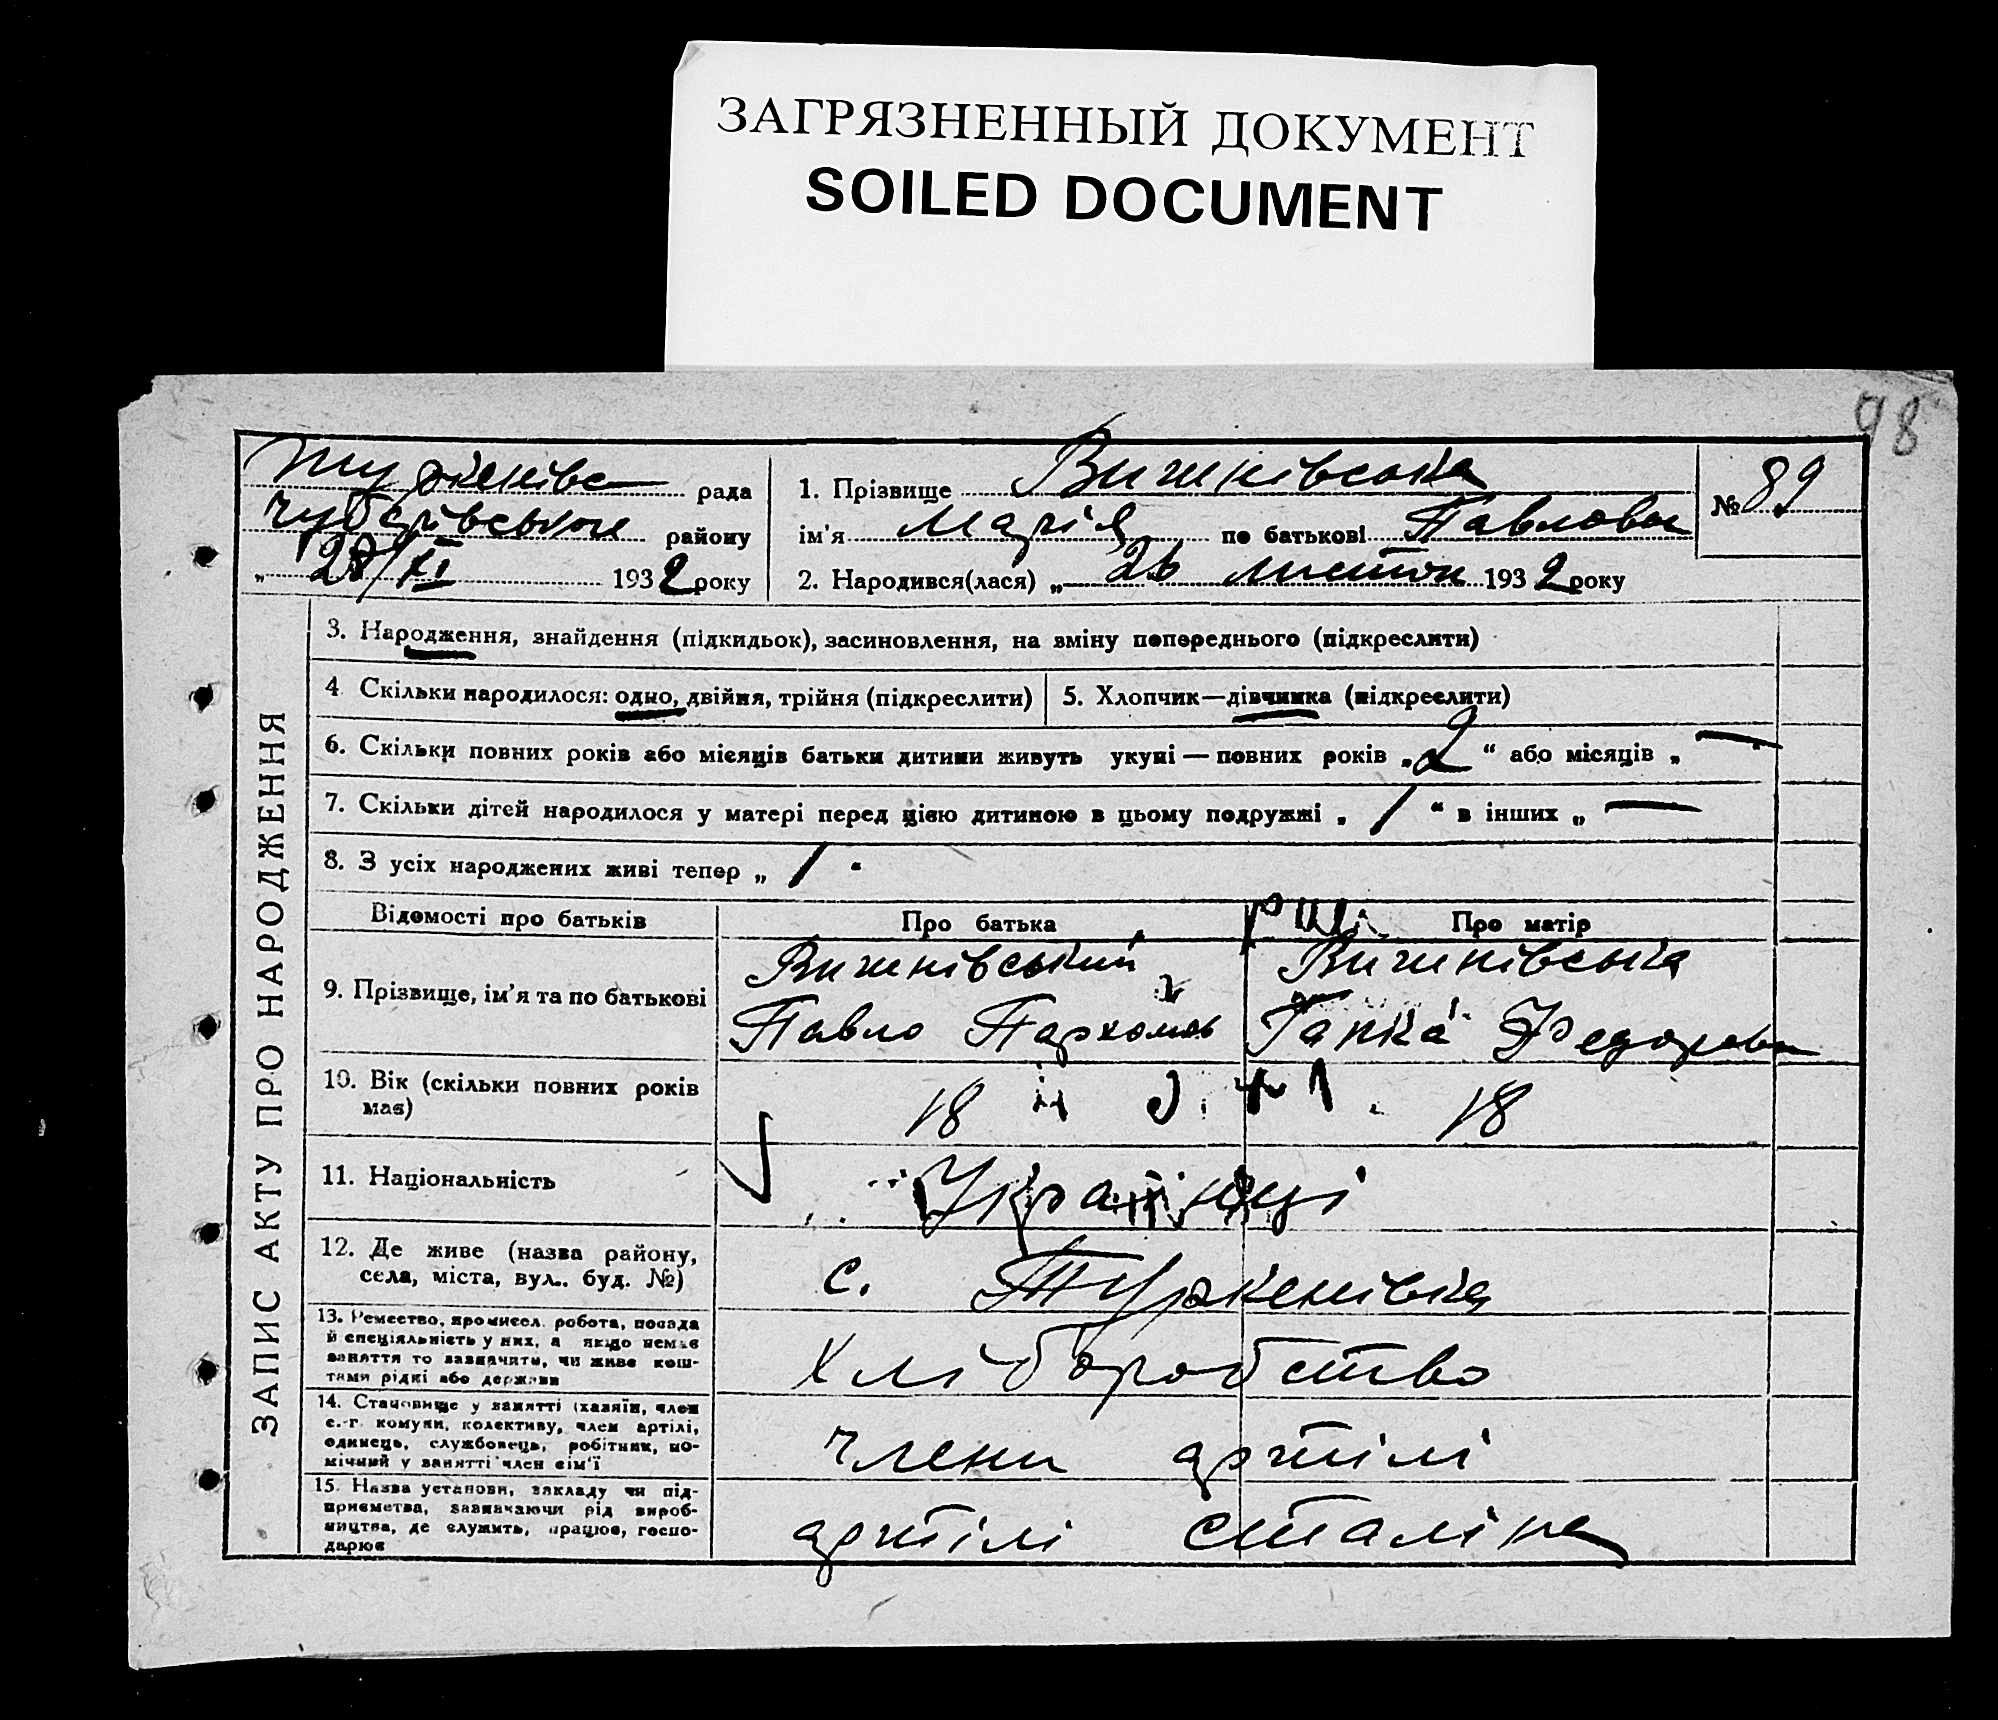 ЗАГРЯЗНЕННЫЙ ДОКУМЕНТ
SOILED DOCUMENT
98
Туркенівс рада
Чубарівського району
„ 28/XI 1932 року
1. Прізвище Вишнівська
ім'я Марія по батькові Павловна
2. Народився(лася) „ 26 листоп 1932 року
№ 89
ЗАПИС АКТУ ПРО НАРОДЖЕННЯ
3. Народження, знайдення (підкидьок), засиновлення, на вміну попереднього (підкреслити)
4 Скільки народилося: одно, двійня, трійня (підкреслити)
5. Хлопчик—дівчинка (підкреслити)
6. Скільки повних років або місяців батьки дитини живуть укупі — повних років „ 2 “ або місяців „ —
7. Скільки дітей народилося у матері перед цією дитиною в цьому подружжі „ 1 “ в інших „ —
8. З усіх народжених живі тепер „ 1 “
Відомості про батьків
Про батька
Про матір
9. Прізвище, ім'я та по батькові
Вишнівський
Павло Пархомов
Вишнівська
Гапка Федоровн
10. Вік (скільки повних років
має)
18
18
11. Національність
Українці
12. Де живе (назва району,
села, міста, вул.. буд. №)
с. Туркенівка
13. Ремество, промисел. робота, посада
й спеціяльність у них, а якщо немає
заняття то зазначити, чи живе кош-
тами рідні або держави
Хліборобство
14. Становище у занятті (хазяїн, член
с.-г. комуни, колективу, член артілі,
одинець, службовець, робітник, по-
мічний у занятті член сім'ї
члени артілі
15. Назва установи, закладу чи під-
приємства, зазначаючи рід вироб-
ництва, де служить, працює, госпо-
дарює
артілі Сталіна